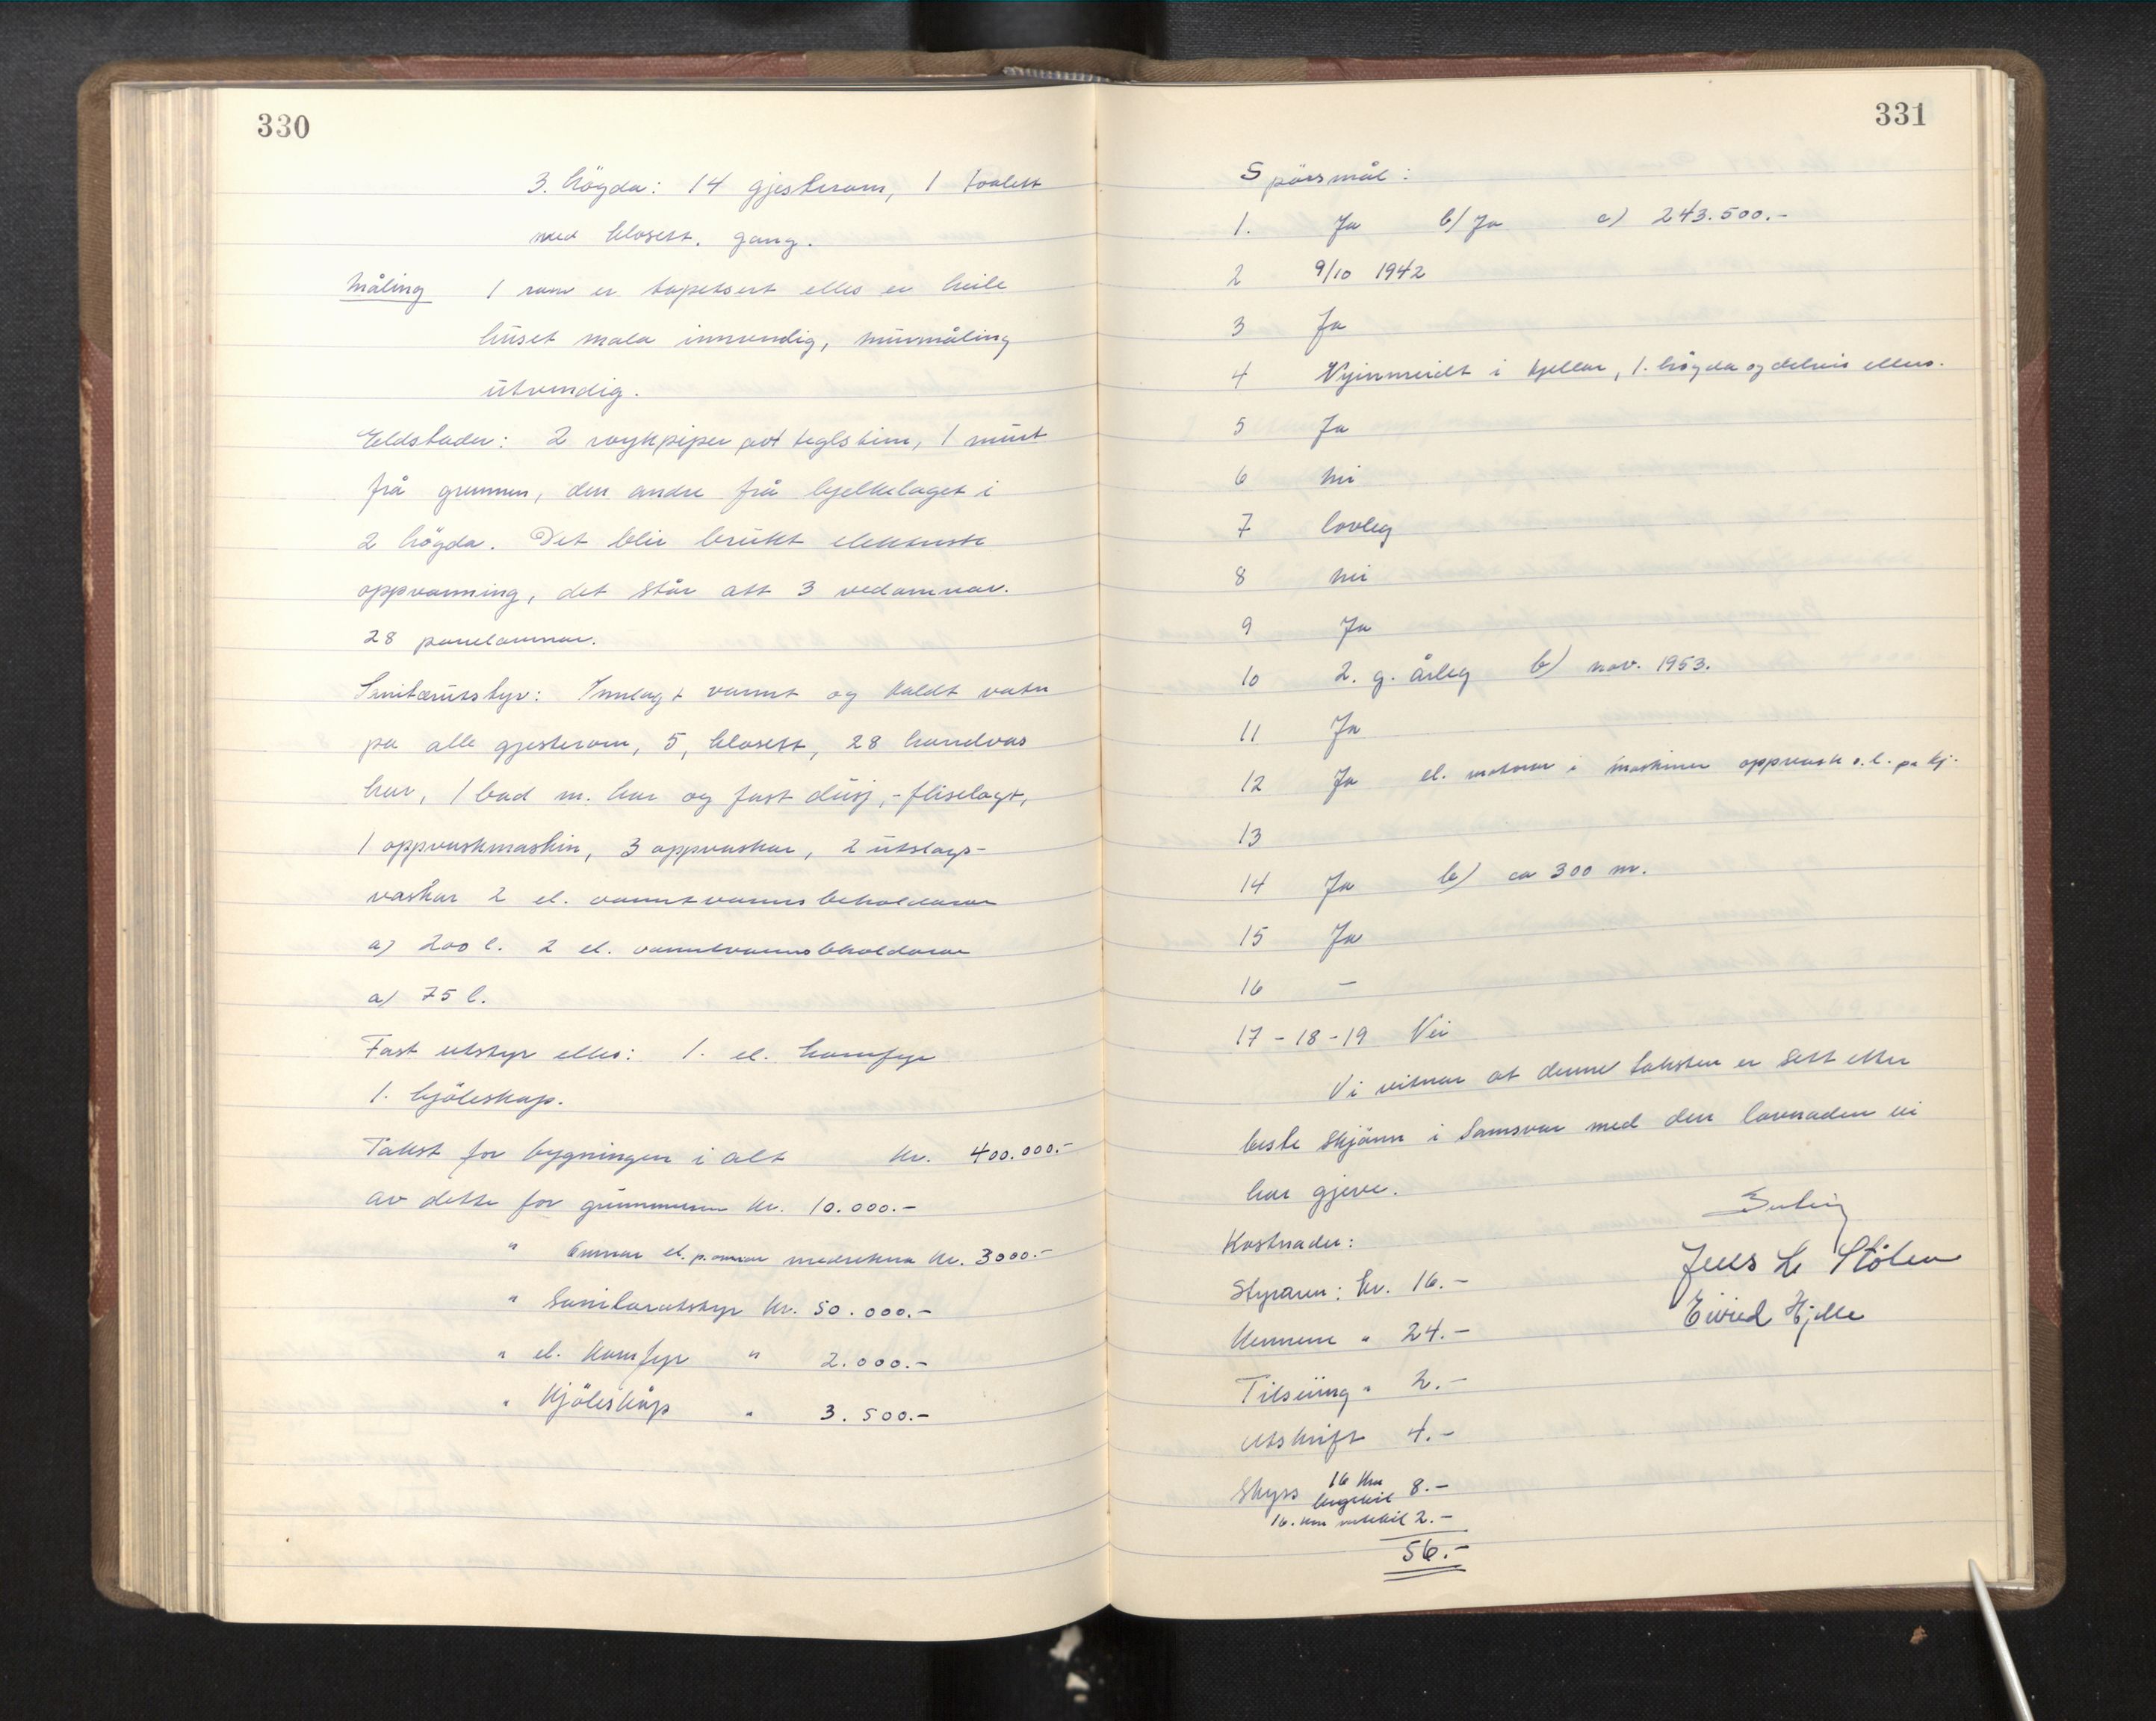 330
3. högda: 14 gjesterom, 1 toalett
med klosett. gang.
Måling 1 rom er tapetsert elles er heile
huset mala innvendig, murmåling
utvendig.
Eldstader: 2 røykpiper av teglstein, 1 murt
frå grunnen, den andre frå bjelkelaget i
2 högda. Det blir brukt elektrisk
oppvarming, det står att 3 vedomnar.
28 panelomnar.
Sanitærutstyr: Innlagt varmt og kaldt vatn
på alle gjesterom, 5, klosett, 28 handvas
kar, 1 bad m. kar og fast dusj, - fliselagt,
1 oppvaskmaskin, 3 oppvaskar, 2 utslags-
vaskar 2 el. varmtvannsbeholdarar
a) 200 l. 2 el. varmtvannsbeholdarar
a) 75 l.
Fast utstyr elles: 1. el. komfyr
1. kjöleskap.
Takst for bygningen i alt kr. 400.000.-
av dette for grunnmuren kr. 10.000.-
" Omnar el. p.omnar medrekna kr. 3000.-
" Sanitærutstyr kr. 50.000.-
" el. komfyr " 2.000.-
" Kjöleskap " 3.500.-
331
Spörsmål:
1. Ja b/ Ja c) 243.500.-
2 9/10 1942
3 Ja
4 i kjellar, 1. högda og delvis elles.
5 Ja
6 nei
7 lovleg
8 nei
9 Ja
10 2. g. årleg b) nov. 1953.
11 Ja
12 Ja el. motorar i maskiner oppvask o.l. på kj.
13
14 Ja b) ca 300 m.
15 Ja
16 -
17 - 18 - 19 Nei
Vi vitnar at denne taksten er sett etter
beste skjönn i samsvar med den lovnaden vi
har gjeve.
Kostnader:
Styraren: kr. 16.-
Mennene " 24.-
Tilseiing " 2.-
Utskrift 4.-
Skyss 16 km
8.-
16. km 2.-
56.-
Jens L Stölen
Eivind Hjelle